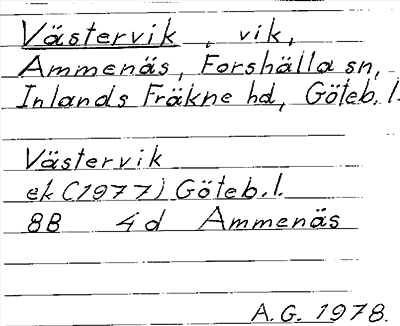 Västervik, vik,
Ammenäs, Forshälla sn,
Inlands Fräkne hd, Göteb. l.
Västervik
ek (1977) Göteb. l.
8B 4d Ammenäs
A.G. 1978.